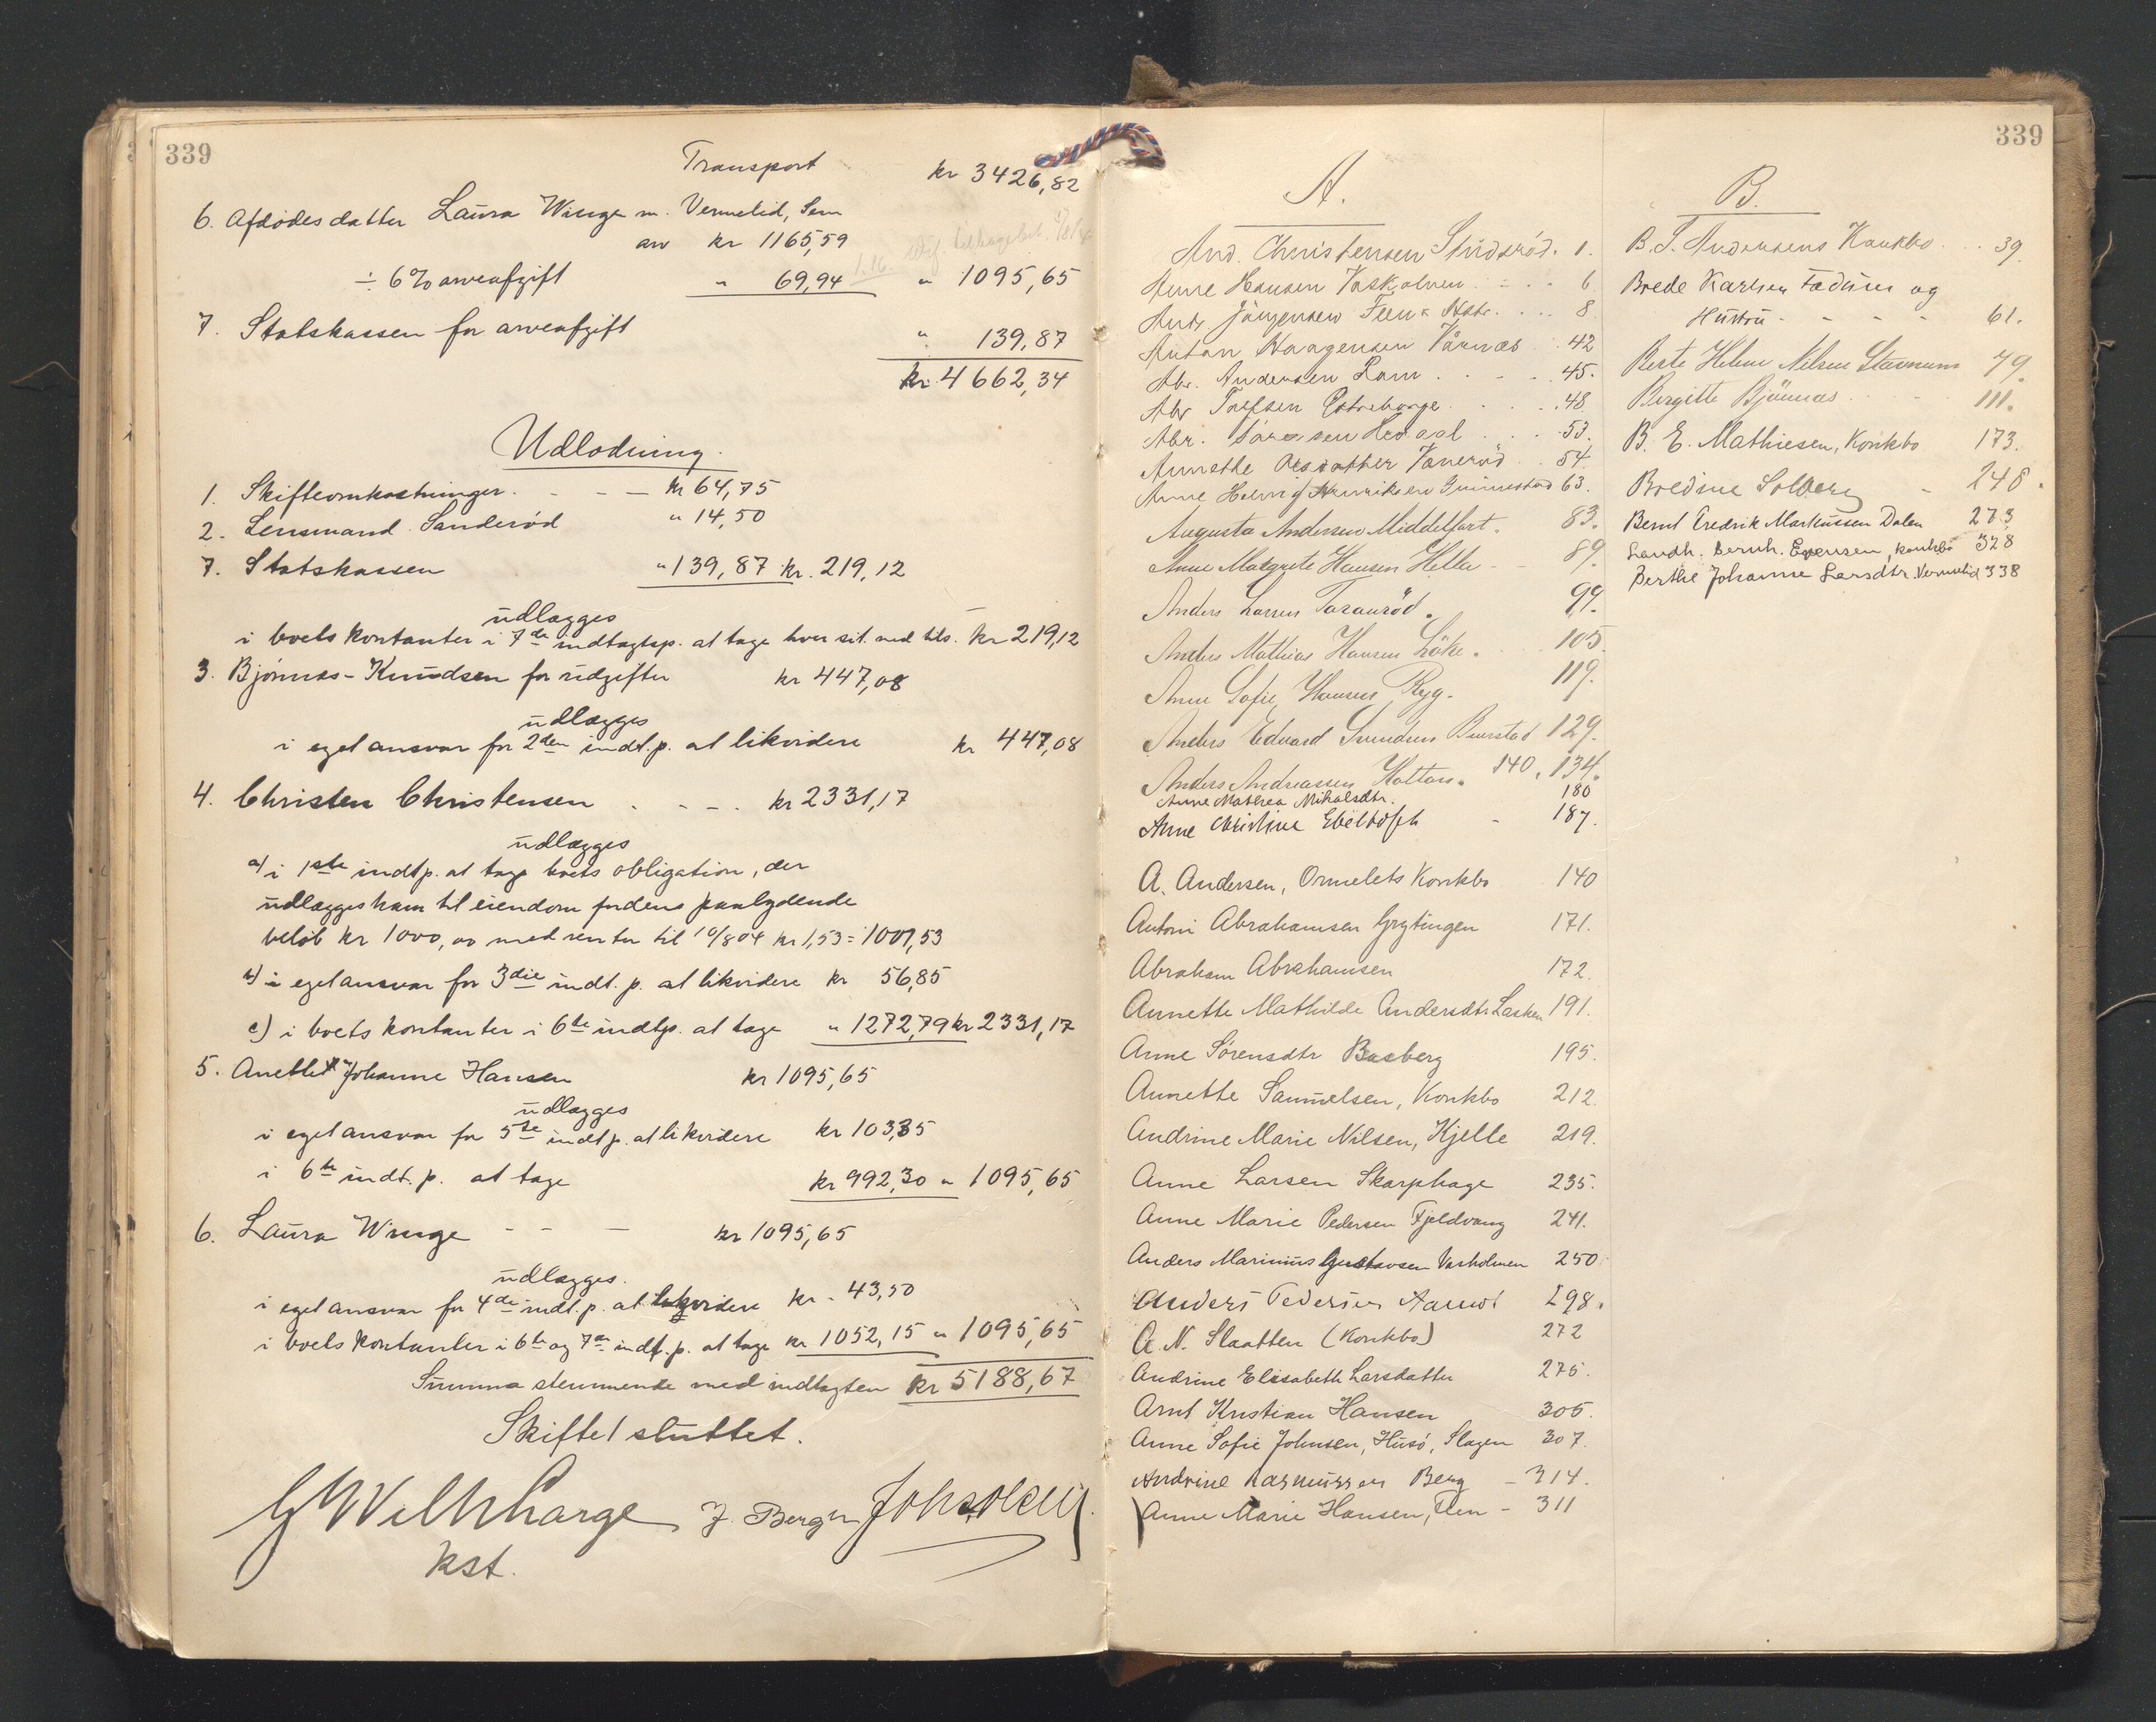 339
Transport kr 3426,82
6. Afdødes datter Laura Winge m. Vermelid, Sem
arv kr 1165,59
÷ 6% arveafgift " 69,94 " 1095,65
7. Statskassen for arveafgift " 139,87
kr 4662,34
Udlodning.
1. Skifteomkostninger. - - — kr 64,75
2. Lensmand Sanderød " 14,50
7. Statskassen " 139,87 kr. 219,12
udlægges
i boets kontanter i 7de indtagtsp. at tage hver sit med tils. kr 219,12
3. Bjønnes-Knudsen for udgifter kr 447,08
udlægges
i eget ansvar for 2den indt.p. at likvidere kr 447,08
4. Christen Christensen . - - . kr 2331,17
udlægges
a) i 1ste indtp. at tage boets obligation, der
udlægges ham til eiendom for dens paalydende
beløb kr 1000,00 med renter til 10/8 04 kr 1,53 = 1001,53
b) i eget ansvar for 3die indt. p. at likvidere kr 56,85
c) i boets kontanter i 6te indtp. at tage " 1272,79 kr 2331,17
5. Anette Johanne Hansen kr 1095,65
udlægges
i eget ansvar for 5te indtp. at likvidere kr 103,35
i 6te indt. p. at tage kr 992,30 " 1095,65
6. Laura Winge - - — kr 1095,65
udlægges.
i eget ansvar for 4de indt. p. at likvidere kr. 43,50
i boets kontanter i 6te og 7de indt. p. at tage kr 1052,15 " 1095,65
Summa stemmende med indtagten kr 5188,67
Skiftet sluttet.
J. Bergh Joh. Olsen
kst.
339
A.
And. Christensen Studsrød. 1.
Anne Hansen Vaskolmen 6
Andr Jørgensen 8
Anton Haagensen Vårnæs 42
Abr. Andersen Ram 45.
Abr Tolfsen 48
Abr. Sørensen Hedaal 53.
Annethe Olsdatther Vanerød 54.
Anne Helvig Henriksen Gunnestad 63.
Augusta Andersen Middelfart. 83.
Anne Margrete Hansen Hella - 89.
Anders Larsen Taranrød. 99.
Anders Mathias Hansen Løke. 105.
Anne Sofie Hansen Ryg. 119.
Anders Edvard Svendsen Buerstad 129.
Anders Andreassen Holtan. 140, 134.
Anne Mathea Mikalsdtr. 180
Anne Christine Ebeltoft - 187.
A. Andersen, Ormelets Konkbo 140
Antoni Abrahamsen Grytingen 171.
Abraham Abrahamsen 172.
Annette Mathilde Andersdtr Lasken 191.
Anne Sørensdtr Basberg 195.
Annette Samuelsen, Konkbo 212.
Andrine Marie Nilsen, Kjelle 219.
Anne Larsen Skarphage 235.
Anne Marie Pedersen Fjeldvang 241.
Anders Marinius Gustavsen Vasholmen 250.
Anders Pedersen Aamot 298.
A. N. Slaatten (Konkbo) 272
Andrine Elisabeth Larsdatter 275.
Arnt Kristian Hansen 305.
Anne Sofie Johnsen, Husø, Slagen 307.
Andrine Rasmussen Berg - 314.
Anne Marie Hansen, Fen - 311
B.
B. T. Andersens Konkbo . . 39.
Brede Karlsen Fadum og
Hustru - - - - 61.
Berte Helene Nilsen Stavnum 79.
Birgitte Bjønnes 111.
B. E. Mathiesen, Konkbo 173.
Bredine Solberg - 248.
Bernt Fredrik Markussen Dalen 273
Landh. Bernh. Evensen, konkbo 328
Berthe Johanne Larsdtr. Vermelid 338